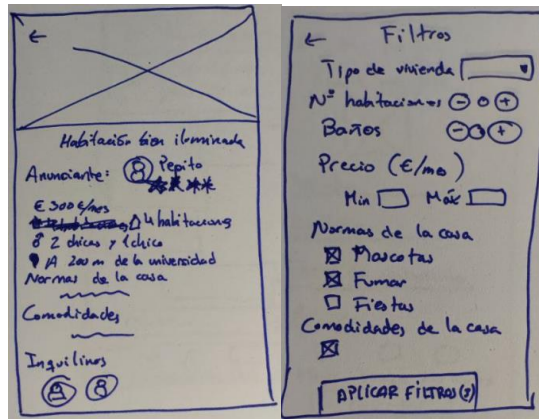 ←
Habitación bien iluminada
Anunciante: Pepito
€ 300€/mes
4 habitaciones
2 chicas y 1 chico
A 200 m de la universidad
Normas de la casa
Comodidades
Inquilinos
← Filtros
Tipo de vivienda
Nº habitaciones - 0 +
Baños - 0 +
Precio (€/mes)
Min Máx
Normas de la casa
Mascotas
Fumar
Fiestas
Comodidades de la casa
APLICAR FILTROS (3)